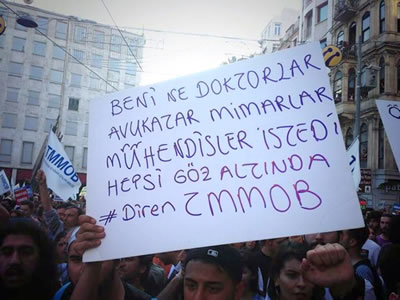 BENİ NE DOKTORLAR
AVUKATLAR MİMARLAR
MÜHENDİSLER İSTEDİ
HEPSİ GÖZALTINDA
#Diren TMMOB
TMMOB